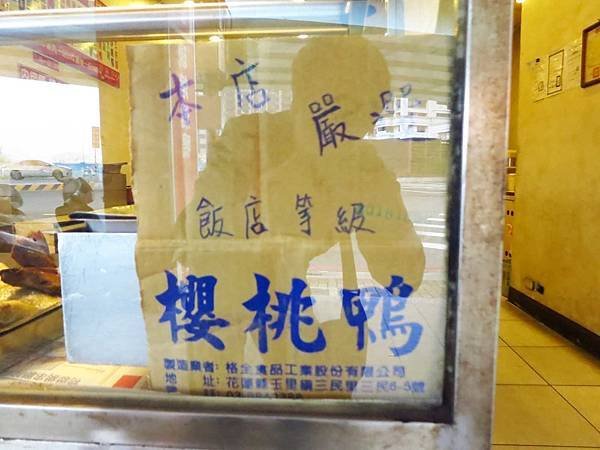 本店
嚴選
飯店等級
櫻桃鴨
製造業者: 格全食品工業股份有限公司
地　址: 花蓮縣玉里鎮三民里三民6-5號